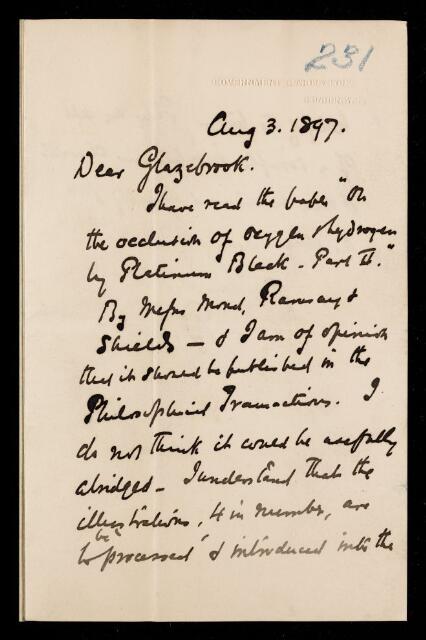 231
GOVERNMENT LABORATORY
Aug 3. 1897.
Dear Glazebrook.
I have read the paper "On
the occlusion of oxygen & hydrogen
by Platinum Black - Part II."
By Messrs Mond, Ramsay &
Shields — & I am of opinion
that it should be published in the
Philosophical Transactions. I
do not think it could be usefully
abridged - I understand that the
illustrations, 4 in number, are
to be "processed" & introduced into the